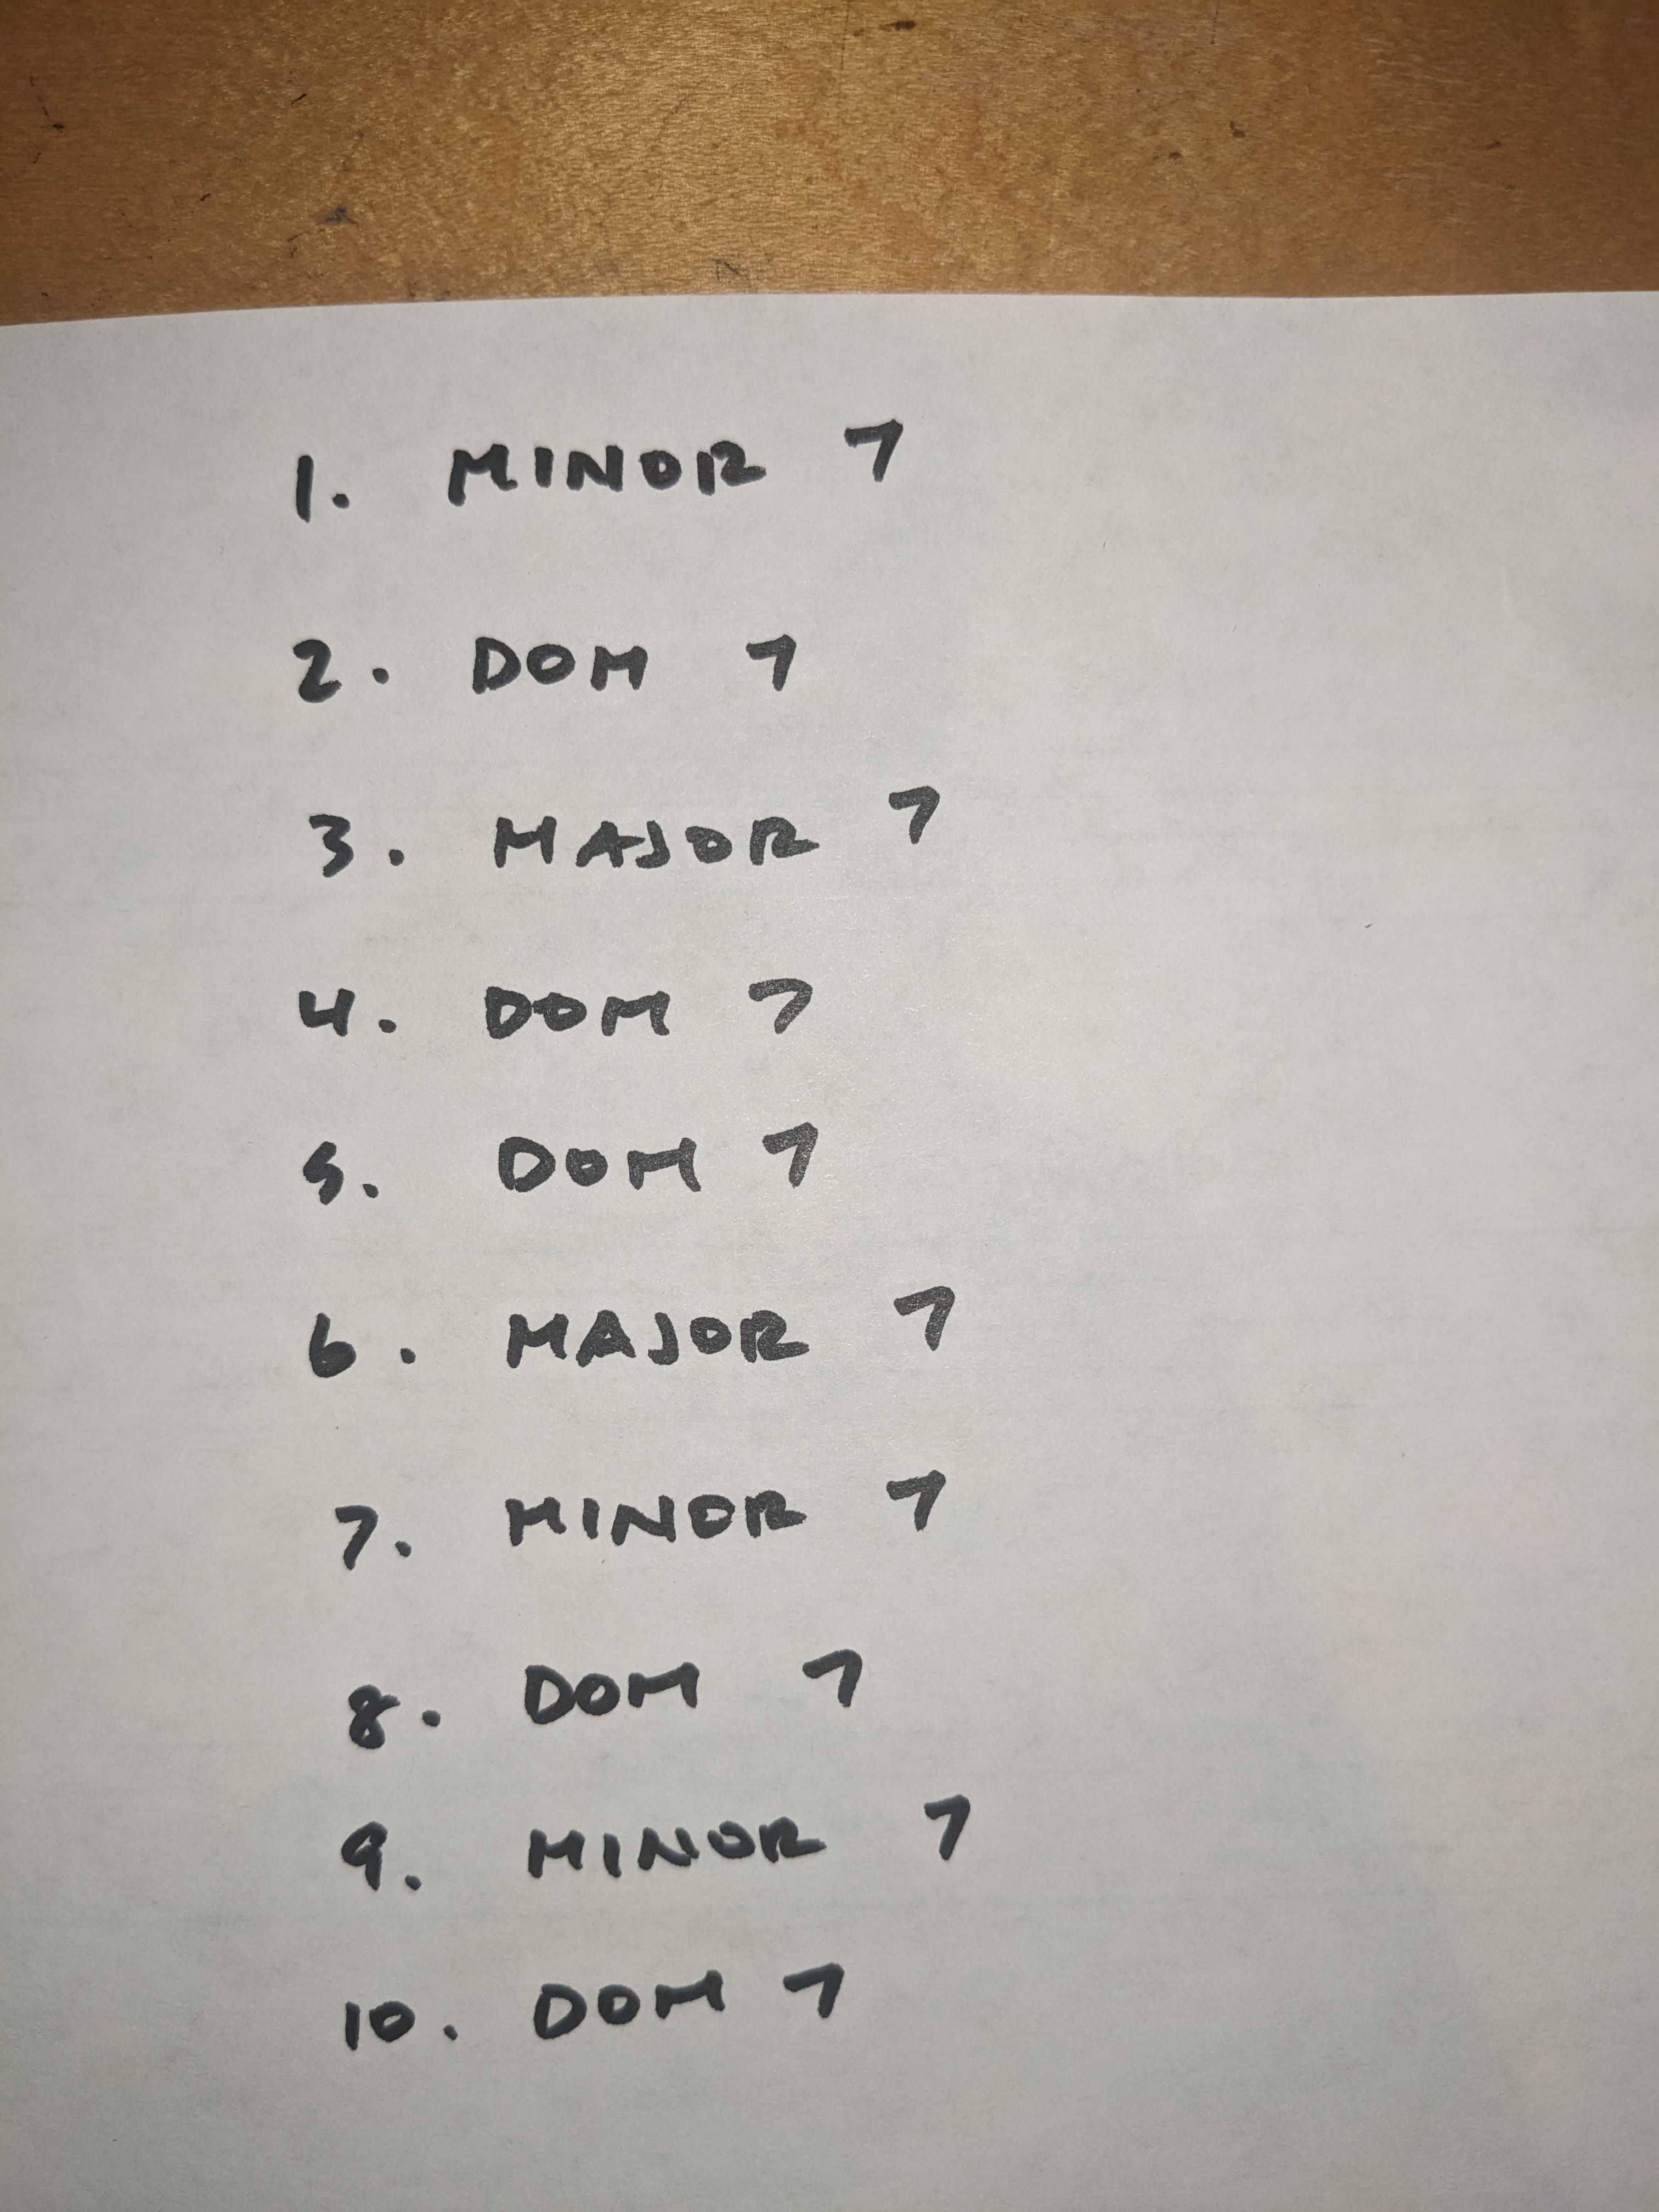 1. MINOR 7
2. DOM 7
3. MAJOR 7
4. DOM 7
5. DOM 7
6. MAJOR 7
7. MINOR 7
8. DOM 7
9. MINOR 7
10. DOM 7